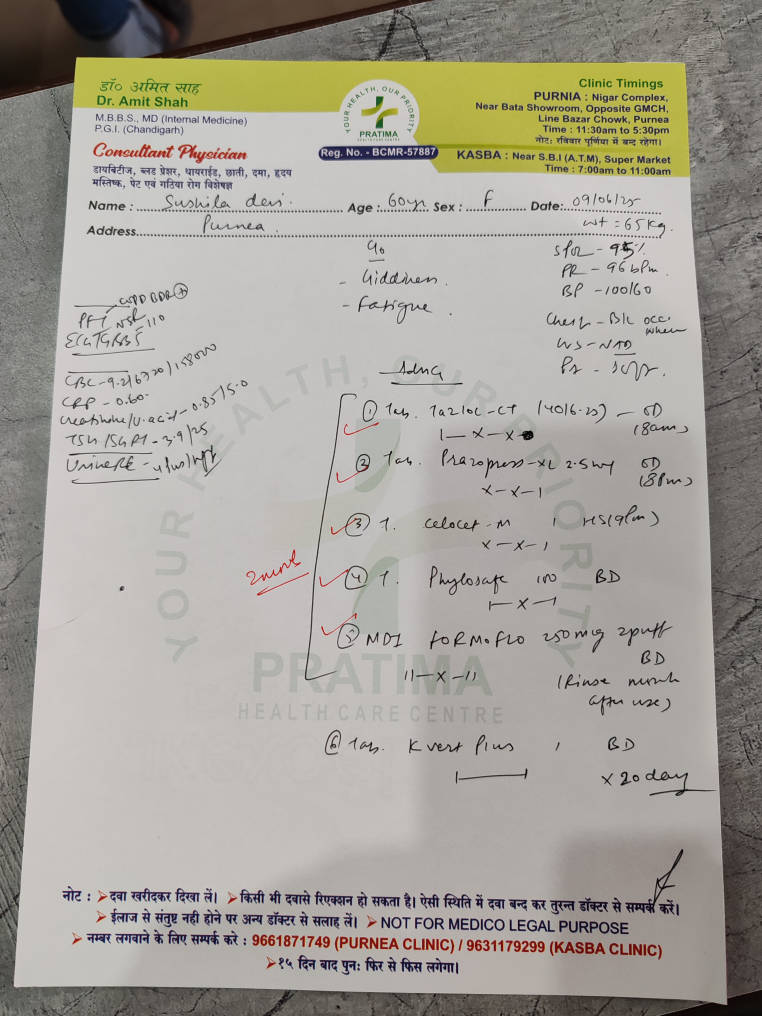 डॉ० अमित साह
Dr. Amit Shah
M.B.B.S., MD (Internal Medicine)
P.G.I. (Chandigarh)
Consultant Physician
डायबिटीज, ब्लड प्रेशर, थायराईड, छाती, दमा, हृदय
मस्तिष्क, पेट एवं गठिया रोग विशेषज्ञ
YOUR HEALTH, OUR PRIORITY
PRATIMA
HEALTH CARE CENTRE
Reg. No. - BCMR-57887
Clinic Timings
PURNIA : Nigar Complex,
Near Bata Showroom, Opposite GMCH,
Line Bazar Chowk, Purnea
Time : 11:30am to 5:30pm
नोट: रविवार पूर्णिया में बन्द रहेगा।
KASBA : Near S.B.I (A.T.M), Super Market
Time : 7:00am to 11:00am
Name : Sushila devi Age : 60yr Sex : F Date: 09/06/25
Address Purnea wt = 65kg.
- Giddiness
- Fatigue
SPO2 - 95%
PR - 96 bpm
BP - 100/60
Chest - B/L occ.
- NAD
P/A - soft
PFT
CBC - 9.2/6720/158000
CRP - 0.60
Creatinine/U. acid - 0.85/5.0
TSH/SGPT - 3.9/25
Urine RE -
① Tab. Tazloc-CT (40/6.25) - OD
1 - x - x (8am)
② Tab. Prazopress-XL 2.5mg OD
x - x - 1 (8pm)
③ T. Celocet-M 1 HS (9pm)
x - x - 1
④ T. Phylosafe 100 BD
1 - x - 1
⑤ MDI FORMOFLO 250mcg 2puff
BD
11 - x - 11 (Rinse mouth
after use)
⑥ Tab. K vert Plus 1 BD
x 20 day
YOUR HEALTH, OUR PRIORITY
PRATIMA
HEALTH CARE CENTRE
नोट : ➢ दवा खरीदकर दिखा लें। ➢ किसी भी दवासे रिएक्शन हो सकता है। ऐसी स्थिति में दवा बन्द कर तुरन्त डॉक्टर से सम्पर्क करें।
➢ ईलाज से संतुष्ट नही होने पर अन्य डॉक्टर से सलाह लें। ➢ NOT FOR MEDICO LEGAL PURPOSE
➢ नम्बर लगवाने के लिए सम्पर्क करे : 9661871749 (PURNEA CLINIC) / 9631179299 (KASBA CLINIC)
➢ १५ दिन बाद पुनः फिर से फिस लगेगा।